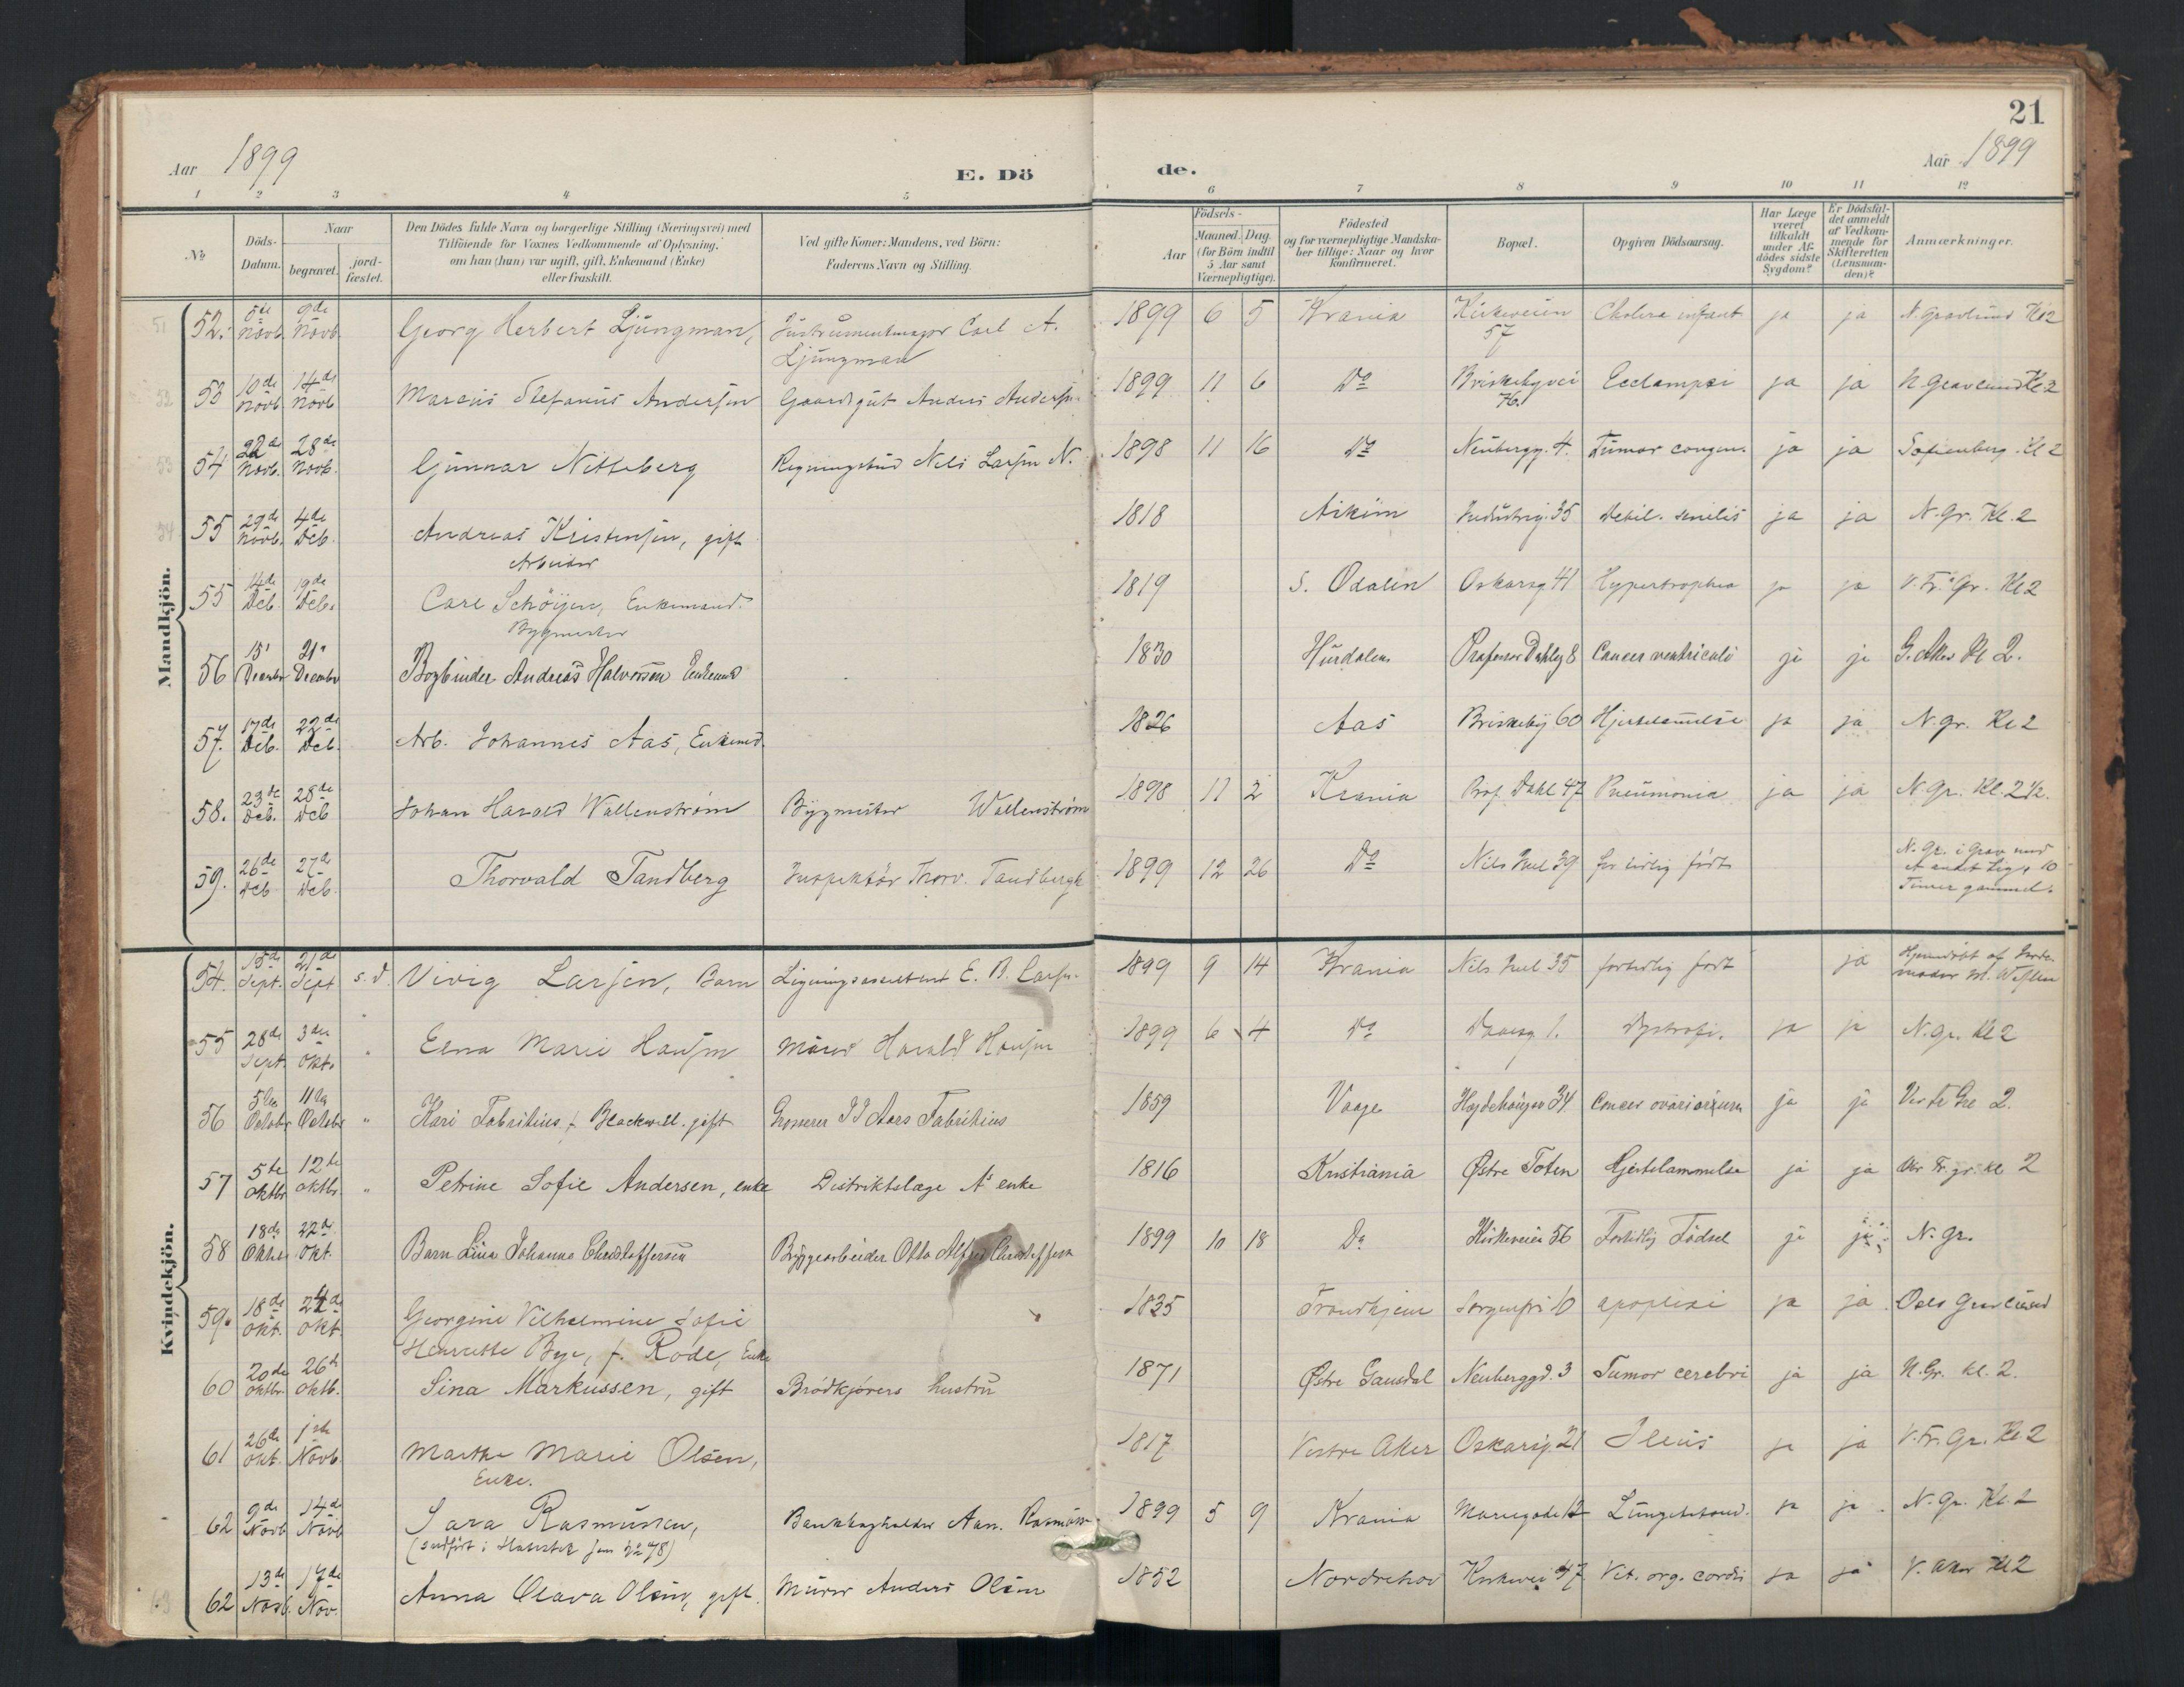 21
Aar 1899
E. Dö
de.
Aar 1899
1 2 3 4 5 6 7 8 9 10 11 12
No
Döds-Datum.
Naar
begravet.
jord-fæstet.
Den Dödes fulde Navn og borgerlige Stilling (Næringsvei) med
Tilföiende for Voxnes Vedkommende af Oplysning,
om han (hun) var ugift, gift, Enkemand (Enke)
eller fraskilt.
Ved gifte Koner: Mandens, ved Börn:
Faderens Navn og Stilling.
Födsels-
Aar
Maaned. Dag.
(for Börn indtil
5 Aar samt
Værnepligtige).
Födested
og for værnepligtige Mandska-
ber tillige: Naar og hvor
konfirmeret.
Bopæl.
Opgiven Dödsaarsag.
Har Læge
været
tilkaldt
under Af-
dödes sidste
Sygdom?
Er Dödsfal-
det anmeldt
af Vedkom-
mende for
Skifteretten
(Lensman-
den)?
Anmærkninger.
Mandkjön.
52. 5te Novb. 9de Novb. Georg Herbert Ljungman, Instrumentmager Carl A. Ljungman 1899 6 5 Krania Kirkeveien 57 Cholera infant ja ja N. Gravlund Kl 2
53 10de Novb 14de Novb Marcus Stefanus Andersen Gaardsgut Anders Andersen 1899 11 6 Do Briskebyvei 76. Ecclampsi ja ja N. Gravlund Kl 2
54 22de Novb. 28de Novb. Gunnar Nitteberg Regningsbud Nils Larsen N. 1898 11 16 Do Neubergg. 4. Tumor congen. ja ja Sofienberg. Kl 2
55 29de Novb. 4de Deb. Andreas Kristensen, gift Arbeider 1818 Askim Industrig. 35 Debil. senilis ja ja N. Gr. Kl. 2
55 14de Deb. 19de Deb. Carl Schöyen, Enkemand. Bygmester 1819 S. Odalen Oskarsg. 41 Hypertrophia ja ja V. Fr. Gr. Kl 2
56 15' December 21' December Bogbinder Andreas Halvorsen Enkemd 1830 Hurdalen Professor Dahlsg 8 Cancer ventriculi ja ja G. Aker Kl 2.
57. 17de Deb. 22de Deb. Arb. Johannes Aas, Enkemd. 1826 Aas Briskeby 60 Hjertelammelse ja ja N. gr. Kl 2
58. 23de Deb. 28de Deb Johan Harald Wallenström Bygmester Wallenström 1898 11 2 Krania Prof. Dahl 47 Pneumonia ja ja N. gr. Kl. 2 ½.
59. 26de Deb 27de Deb. Thorvald Tandberg Inspektör Thorv. Tandberg 1899 12 26 Do Nils Juel 39 for tidlig födt N. Gr. i Grav med et andet Lig, 10 Timer gammel.
Kvindekjön.
54. 15de Sept. 21de Sept s. d. Vivig Larsen, Barn Ligningsassistent E. B. Larsen 1899 9 14 Krania Nils Juel 35 fortidlig födt ja Hjemmedöbt af Jorde-moder
55 28de Sept. 3die Okt. " Elna Marie Hansen Murer Harald Hansen 1899 6 4 Do Daasg. 1. Dystrofi. ja ja N. gr. Kl 2
56 5te October 11te October " Kari Fabritius, f. Blackwell. gift Grosserer J J Aars Fabritius 1859 Vaage Hegdehaugen 34 Cancer ovariorum ja ja Vestre Gr 2.
57 5te Oktbr 12te Oktbr. " Petrine Sofie Andersen, enke Distriktslæge As enke 1816 Kristiania Østre Toten Hjertelammelse ja ja Vor Fr. gr. kl 2
58 18de Oktbr 22de Okt. Barn Lina Johanne Christoffersen Bryggearbeider Otto Alfred Christoffersen 1899 10 18 Do Kirkeveien 56 Fortidlig Födsel ja ja N. gr.
59. 18de Okt. 24de Okt. Georgine Vilhelmine Sofie Henriette Bye, f. Rode, Enke 1835 Trondhjem Sorgenfri 10 apoplexi ja ja Oslo Gravlund
60 20de Oktbr. 26de Oktb. Sina Markussen, gift Brödkjörers hustru 1871 Østre Gausdal Neuberggd. 3 Tumor cerebri ja ja N. Gr. Kl. 2.
61 26de Okt. 1ste Novb. Marthe Marie Olsen, Enke. 1817 Vestre Aker Oskarsg. 21 Ileus ja ja V. Fr. Gr. Kl. 2
62 9de Novb 14de Novb Sara Rasmussen, Bankbogholder Aan. Rasmussen 1899 5 9 Krania Mariegade 12 Lungebetænd. ja ja N. Gr. Kl. 2
62 13de Novb. 17de Nov. Anna Olava Olsen, gift. Murer Anders Olsen 1852 Nordrehov Kirkevei 47 Vit. org. cordis ja ja V. Aker Kl 2